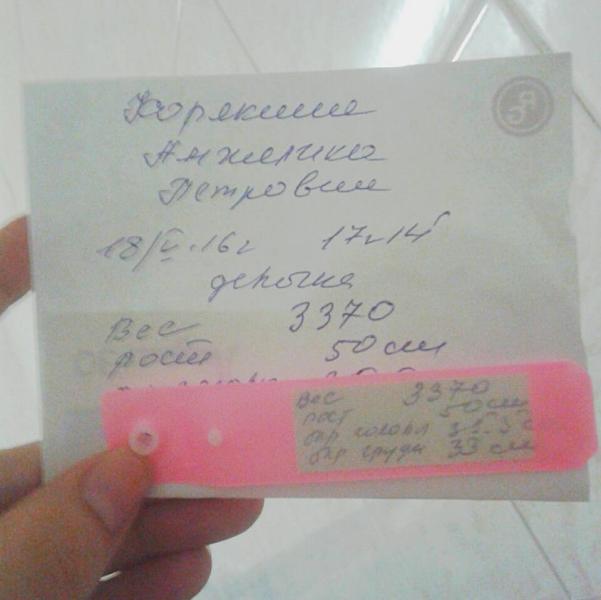 Корякина
Анжелика
Петровна
18/V.16г 17ч14'
девочка
Вес 3370
рост 50см
Вес 3370
рост 50см
окр головы
окр груди 33 см